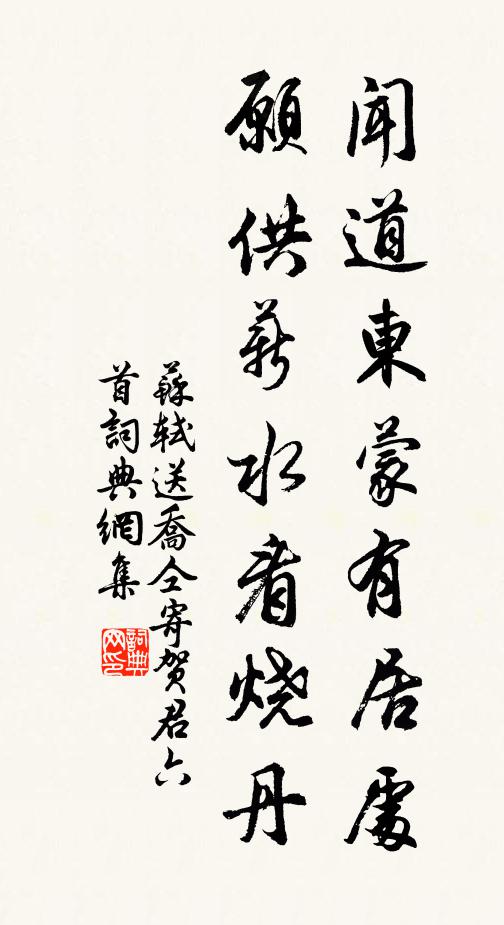 聞道東蒙有居處
願供薪水看燒丹
蘇軾送喬仝寄賀君六
首詞典網集
詞典网印